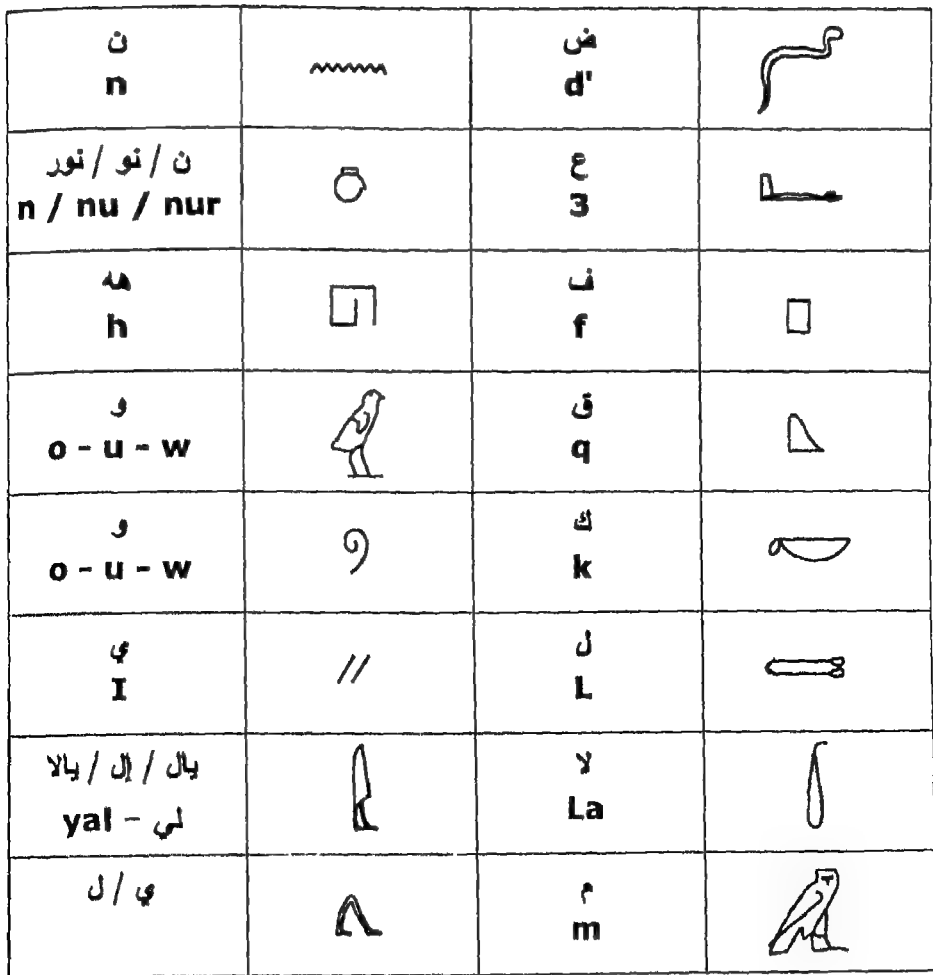 ن
n
ض
d'
ن / نو / نور
n / nu / nur
ع
3
هه
h
ف
f
و
o - u - w
ق
q
و
o - u - w
ك
k
ي
I
ل
L
يال / إل / يالا
yal - لي
لا
La
ي / ل
م
m